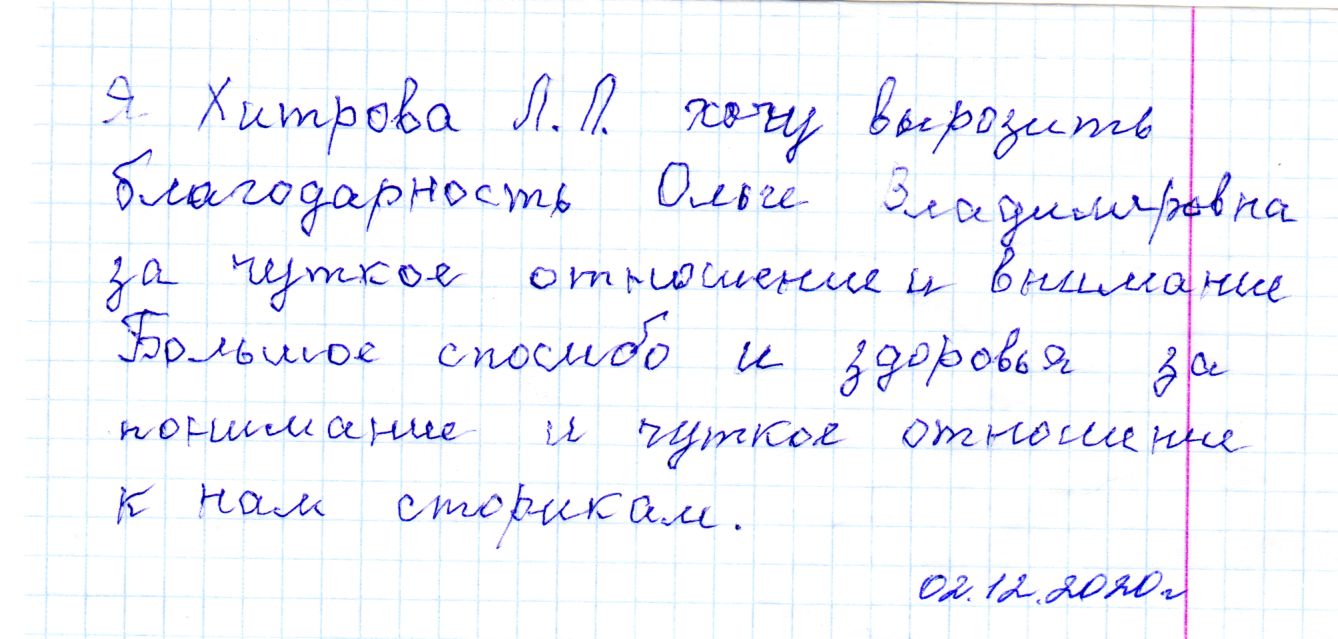 Я Хитрова Л.П. хочу вырозить
благодарность Ольге Владимировна
за чуткое отношение и внимание
Большое спосибо и здоровья за
понимание и чуткое отношение
к нам сторикам.
02.12.2020г